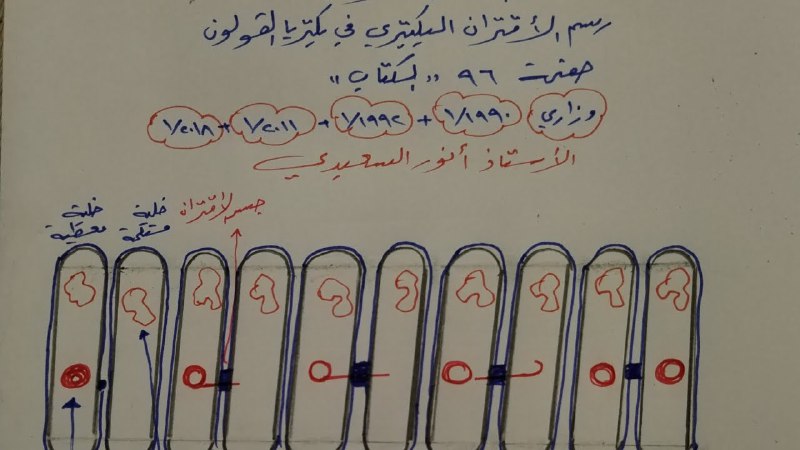 رسم الأقتران البكتيري في بكتريا القولون
صفحة ٩٦ "بكتاب"
وزاري ١/١٩٩٠ + ١/١٩٩٢ + ١/٢٠١١ + ١/٢٠١٨
الأستاذ أنور السعيدي
خلية معطية
خلية مستلمة
جسر الاقتران